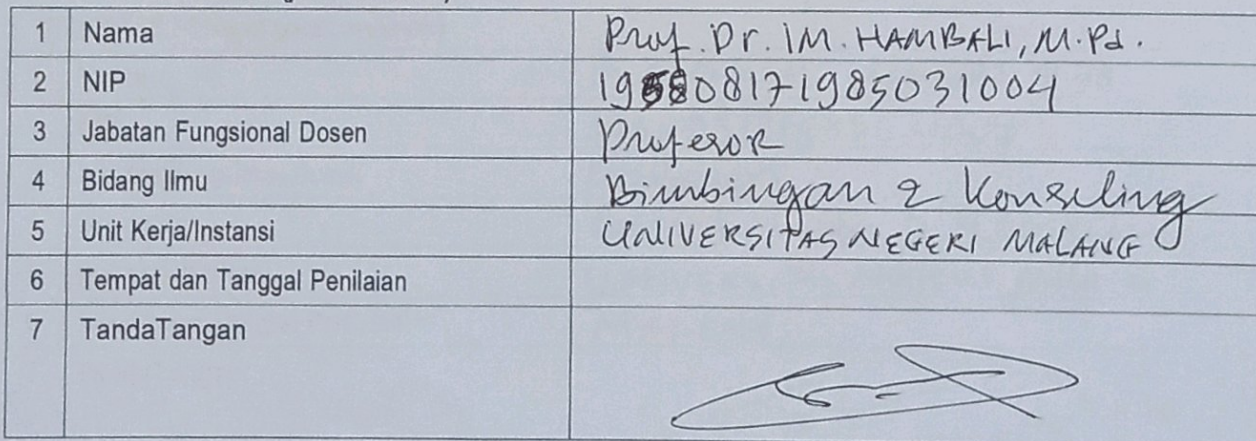 1 Nama Prof. Dr. IM. HAMBALI, M.Pd.
2 NIP 195808171985031004
3 Jabatan Fungsional Dosen Profesor
4 Bidang Ilmu Bimbingan & Konseling
5 Unit Kerja/Instansi UNIVERSITAS NEGERI MALANG
6 Tempat dan Tanggal Penilaian
7 TandaTangan